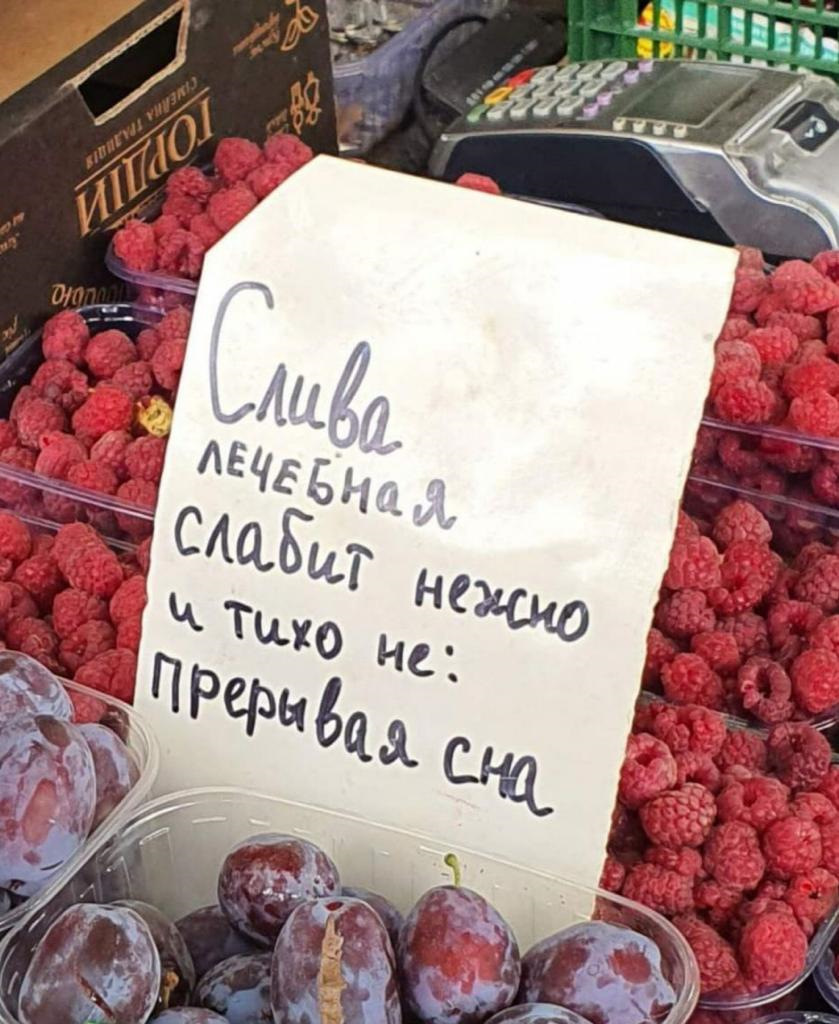 ГОРДІЙ
СІМЕЙНА ТРАДИЦІЯ
Слива
ЛЕЧЕБНАЯ
СЛАБИТ нежно
и тихо не:
прерывая сна